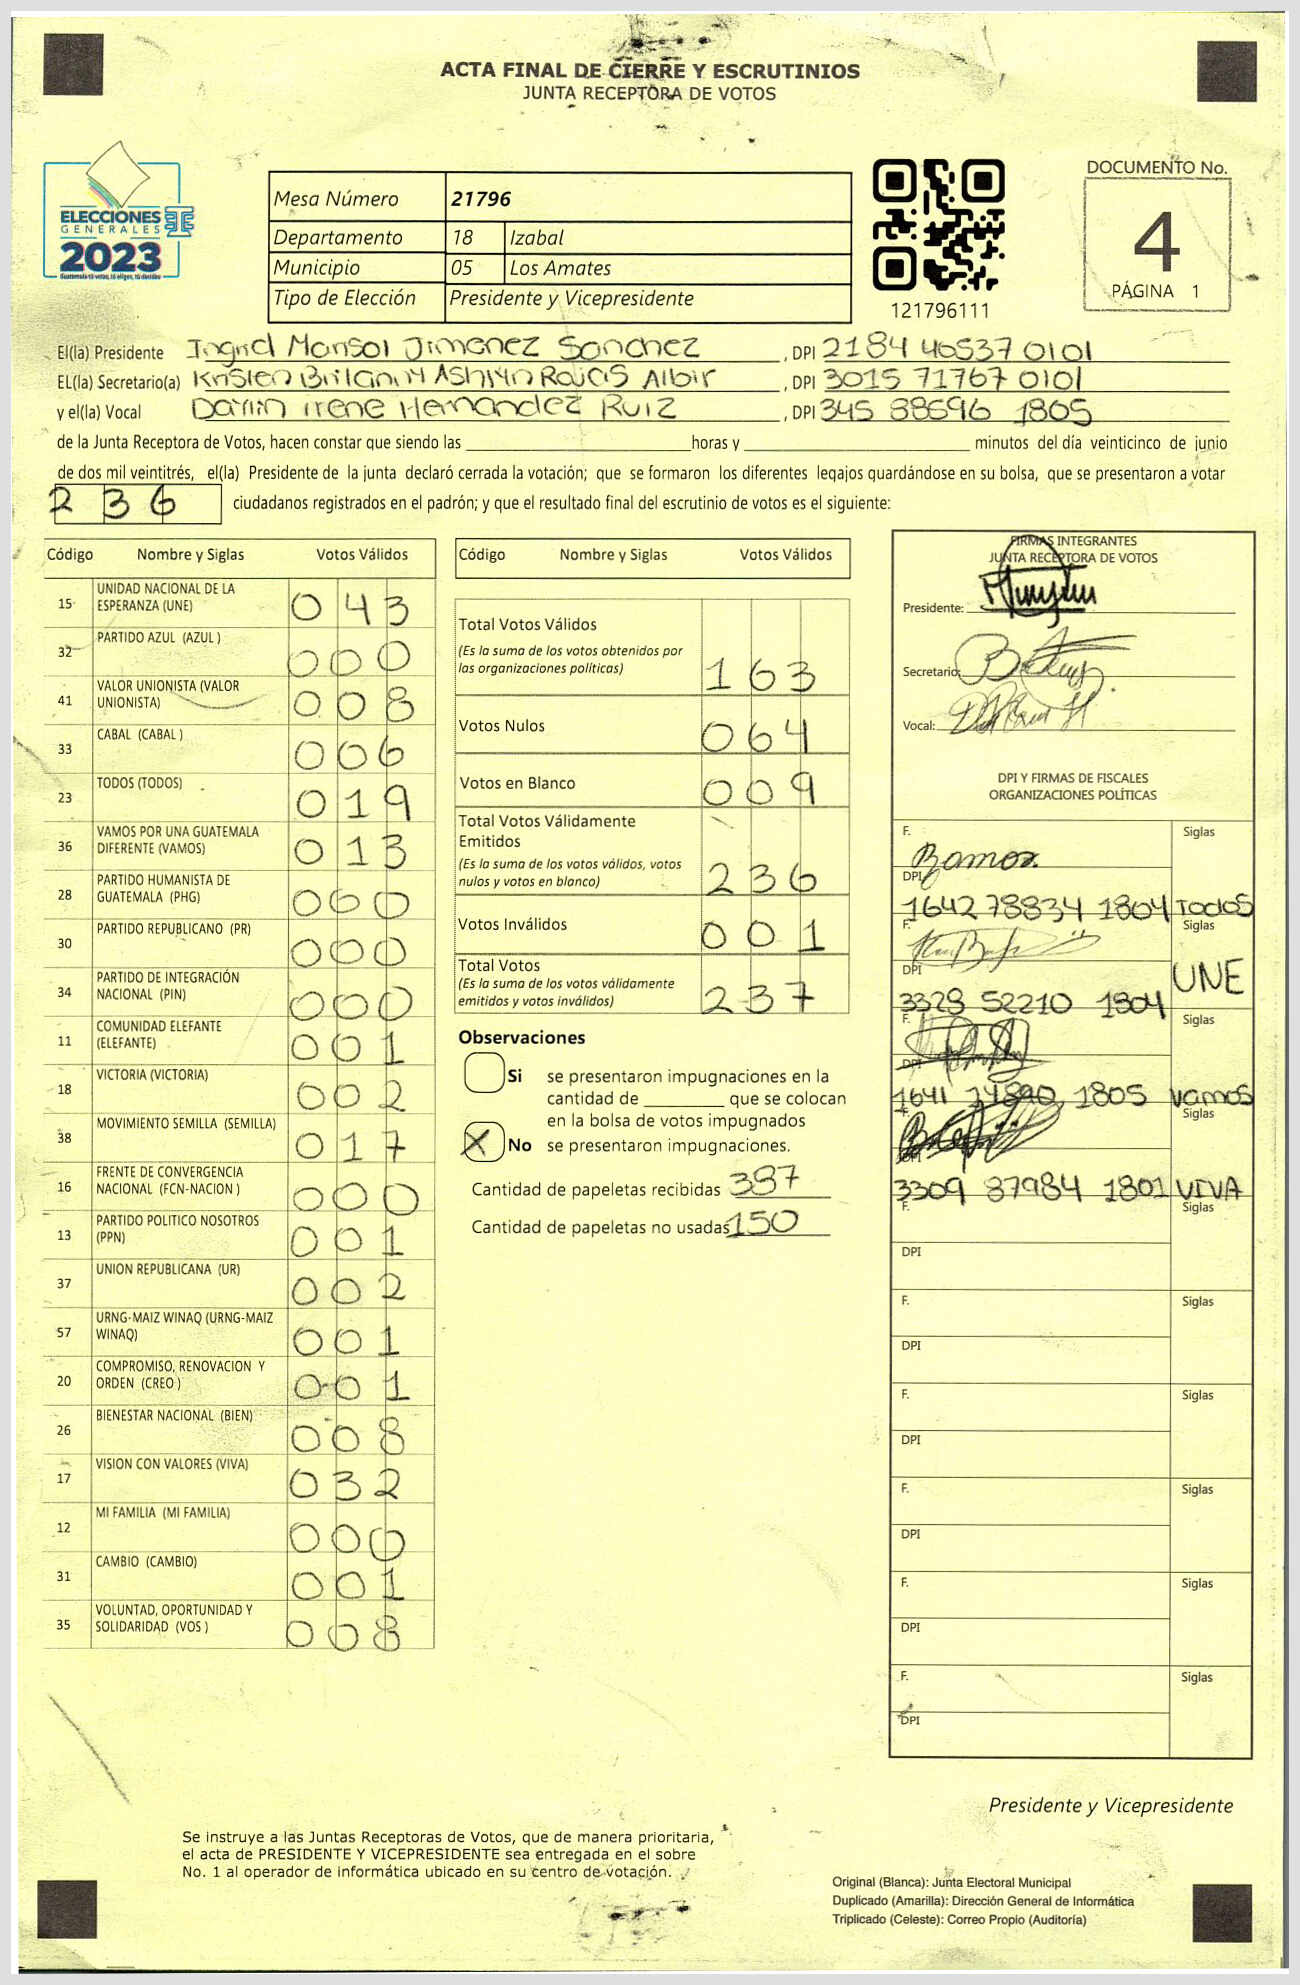 ACTA FINAL DE CIERRE Y ESCRUTINIOS
JUNTA RECEPTORA DE VOTOS
ELECCIONES
GENERALES
2023
Mesa Número 21796
Departamento 18 Izabal
Municipio 05 Los Amates
Tipo de Elección Presidente y Vicepresidente
121796111
DOCUMENTO No.
4
PÁGINA 1
El(la) Presidente Ingrid Marisol Jimenez Sanchez , DPI 2184 46537 0101
EL(la) Secretario(a) Kristen Britanny Ashlyn Rojas Albir , DPI 3015 71767 0101
y el(la) Vocal Darlin Irene Hernandez Ruiz , DPI 345 88696 1805
de la Junta Receptora de Votos, hacen constar que siendo las horas y minutos del día veinticinco de junio
de dos mil veintitrés, el(la) Presidente de la junta declaró cerrada la votación; que se formaron los diferentes legajos guardándose en su bolsa, que se presentaron a votar
236 ciudadanos registrados en el padrón; y que el resultado final del escrutinio de votos es el siguiente:
Código Nombre y Siglas Votos Válidos
15 UNIDAD NACIONAL DE LA
ESPERANZA (UNE) 043
32 PARTIDO AZUL (AZUL ) 000
41 VALOR UNIONISTA (VALOR
UNIONISTA) 008
33 CABAL (CABAL ) 006
23 TODOS (TODOS) 019
36 VAMOS POR UNA GUATEMALA
DIFERENTE (VAMOS) 013
28 PARTIDO HUMANISTA DE
GUATEMALA (PHG) 000
30 PARTIDO REPUBLICANO (PR) 000
34 PARTIDO DE INTEGRACIÓN
NACIONAL (PIN) 000
11 COMUNIDAD ELEFANTE
(ELEFANTE) 001
18 VICTORIA (VICTORIA) 002
38 MOVIMIENTO SEMILLA (SEMILLA) 017
16 FRENTE DE CONVERGENCIA
NACIONAL (FCN-NACION ) 000
13 PARTIDO POLITICO NOSOTROS
(PPN) 001
37 UNION REPUBLICANA (UR) 002
57 URNG-MAIZ WINAQ (URNG-MAIZ
WINAQ) 001
20 COMPROMISO, RENOVACION Y
ORDEN (CREO ) 001
26 BIENESTAR NACIONAL (BIEN) 008
17 VISION CON VALORES (VIVA) 032
12 MI FAMILIA (MI FAMILIA) 000
31 CAMBIO (CAMBIO) 001
35 VOLUNTAD, OPORTUNIDAD Y
SOLIDARIDAD (VOS ) 008
Código Nombre y Siglas Votos Válidos
Total Votos Válidos
(Es la suma de los votos obtenidos por
las organizaciones políticas) 163
Votos Nulos 064
Votos en Blanco 009
Total Votos Válidamente
Emitidos
(Es la suma de los votos válidos, votos
nulos y votos en blanco) 236
Votos Inválidos 001
Total Votos
(Es la suma de los votos válidamente
emitidos y votos inválidos) 237
Observaciones
Si se presentaron impugnaciones en la
cantidad de que se colocan
en la bolsa de votos impugnados
X No se presentaron impugnaciones.
Cantidad de papeletas recibidas 387
Cantidad de papeletas no usadas 150
FIRMAS INTEGRANTES
JUNTA RECEPTORA DE VOTOS
Presidente:
Secretario:
Vocal:
DPI Y FIRMAS DE FISCALES
ORGANIZACIONES POLÍTICAS
F. Siglas
DPI
1642 78834 1804 TODOS
F. Siglas
DPI UNE
3328 52210 1804
F. Siglas
DPI
1641 1805 Vamos
F. Siglas
DPI
3309 87984 1801 VIVA
F. Siglas
DPI
F. Siglas
DPI
F. Siglas
DPI
F. Siglas
DPI
F. Siglas
DPI
F. Siglas
DPI
Presidente y Vicepresidente
Se instruye a las Juntas Receptoras de Votos, que de manera prioritaria,
el acta de PRESIDENTE Y VICEPRESIDENTE sea entregada en el sobre
No. 1 al operador de informática ubicado en su centro de votación.
Original (Blanca): Junta Electoral Municipal
Duplicado (Amarilla): Dirección General de Informática
Triplicado (Celeste): Correo Propio (Auditoría)